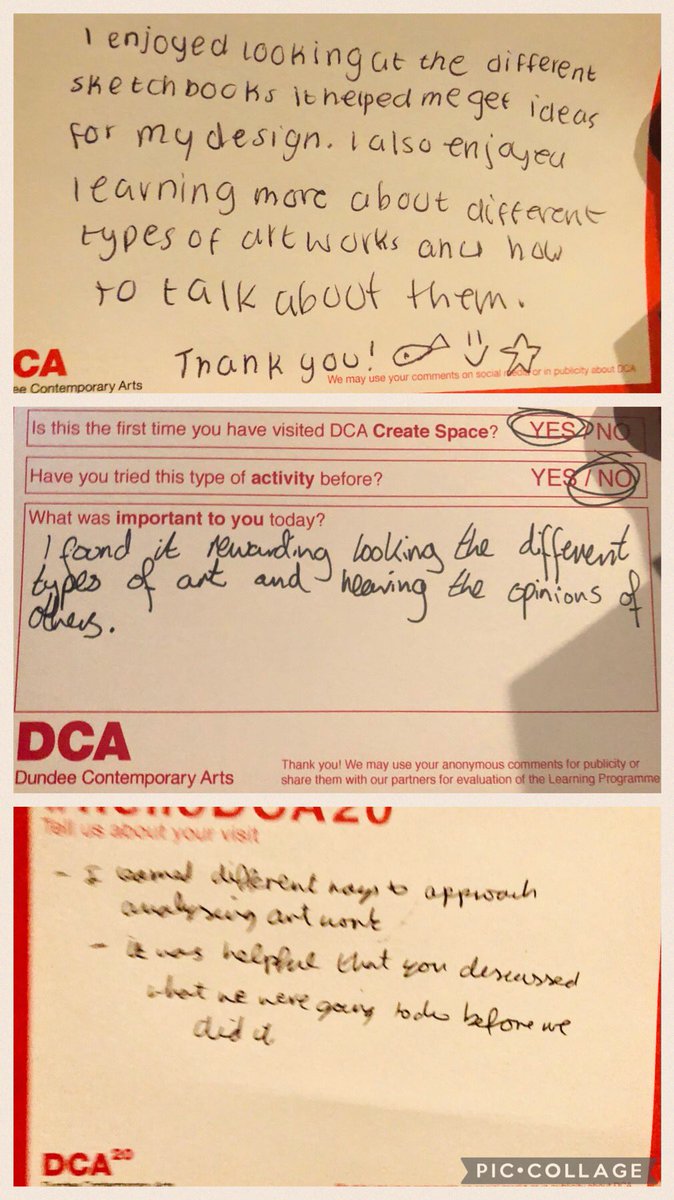 I enjoyed looking at the different
sketchbooks it helped me get ideas
for my design. I also enjoyed
learning more about different
types of artworks and how
to talk about them.
Thank you!
CA
ee Contemporary Arts
We may use your comments on social media or in publicity about DCA
Is this the first time you have visited DCA Create Space? YES / NO
Have you tried this type of activity before? YES / NO
What was important to you today?
I found it rewarding looking the different
types of art and hearing the opinions of
others.
DCA
Dundee Contemporary Arts
Thank you! We may use your anonymous comments for publicity or
share them with our partners for evaluation of the Learning Programme
DCA20
Tell us about your visit
- I learned different ways to approach
analysing art work
- it was helpful that you discussed
what we were going to do before we
did it
DCA20
PIC•COLLAGE